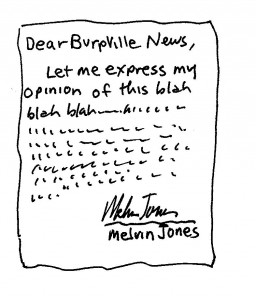 Dear Burpville News,
Let me express my
opinion of this blah
blah blah
Melvin Jones
Melvin Jones